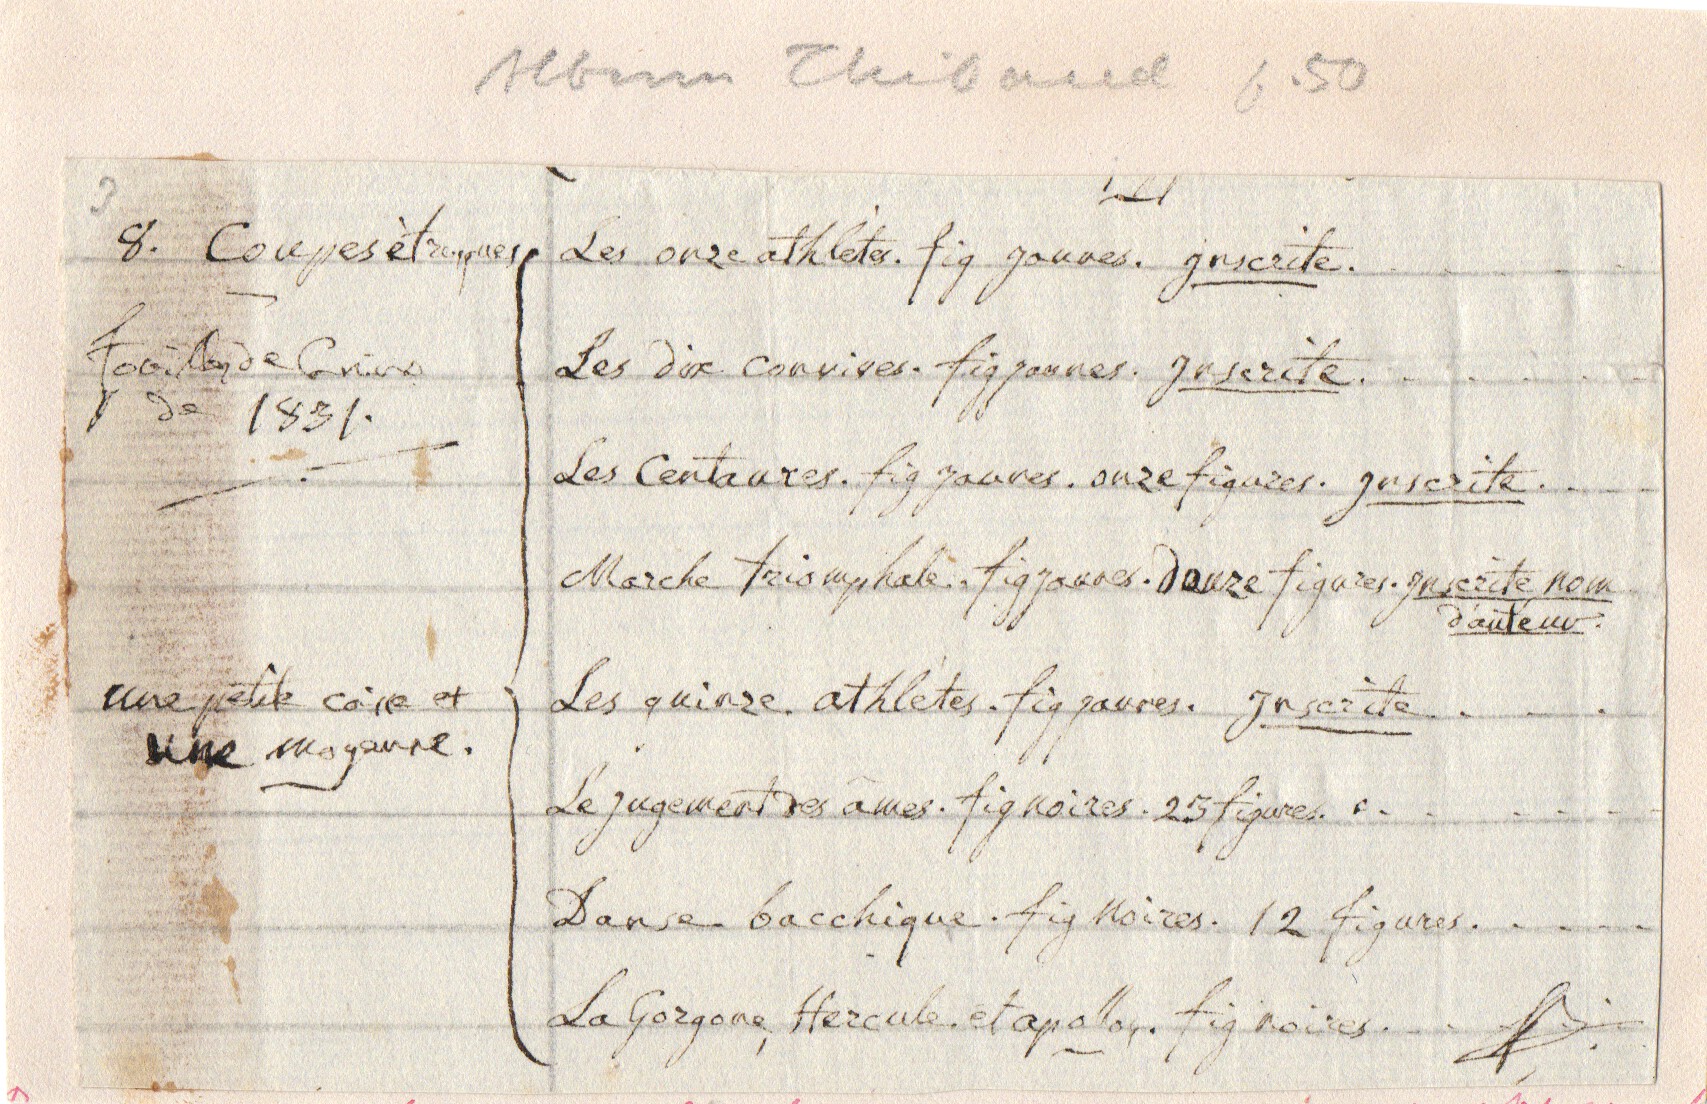 Album Thibaud f. 50
3
8. Coupes étrusques. Les onze athlètes. fig jaunes. jnscrite.
fouilles de Canino
de 1831.
Les dix convives. fig jaunes. jnscrite.
Les Centaures. fig jaunes. onze figures. jnscrite.
Marche triomphale. fig jaunes. Douze figures. jnscrite nom
d'auteur.
une petite caisse et
une moyenne.
Les quinze athlètes. fig jaunes. jnscrite
Le jugement des âmes. fig noires. 23 figures.
Danse bacchique. fig noires. 12 figures.
La Gorgone, Hercule et apollon. fig noires.